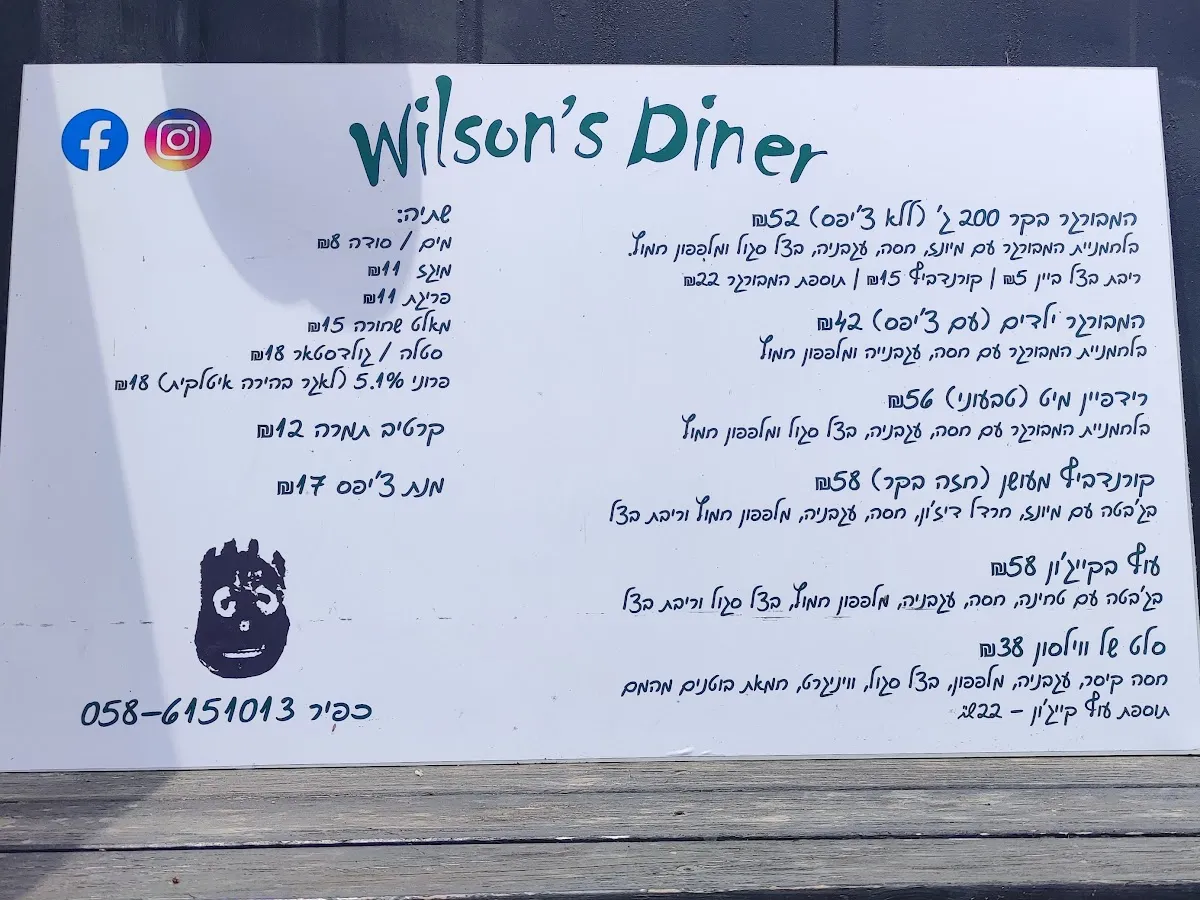 Wilson's Diner
המבורגר בקר 200 ג' (ללא צ'יפס) 52₪
בלחמניית המבורגר עם מיונז, חסה, עגבניה, בצל סגול ומלפפון חמוץ.
ריבת בצל ביין 5₪ | קורנדביף 15₪ | תוספת המבורגר 22₪
המבורגר ילדים (עם צ'יפס) 42₪
בלחמניית המבורגר עם חסה, עגבנייה ומלפפון חמוץ
רידפיין מיט (טבעוני) 56₪
בלחמניית המבורגר עם חסה, עגבניה, בצל סגול ומלפפון חמוץ
קורנדביף מעושן (חזה בקר) 58₪
בג'בטה עם מיונז, חרדל דיז'ון, חסה, עגבניה, מלפפון חמוץ וריבת בצל
עוף בקייג'ון 58₪
בג'בטה עם טחינה, חסה, עגבניה, מלפפון חמוץ, בצל סגול וריבת בצל
סלט של ווילסון 38₪
חסה קיסר, עגבניה, מלפפון, בצל סגול, ווינגרט, חמאת בוטנים מהמם
תוספת עוף קייג'ון – 22שח
שתיה:
מים / סודה 8₪
מוגז 11₪
פריגת 11₪
מאלט שחורה 15₪
סטלה / גולדסטאר 18₪
פרוני 5.1% (לאגר בהירה איטלקית) 18₪
קרטיב תמרה 12₪
מנת צ'יפס 17₪
כפיר 058-6151013